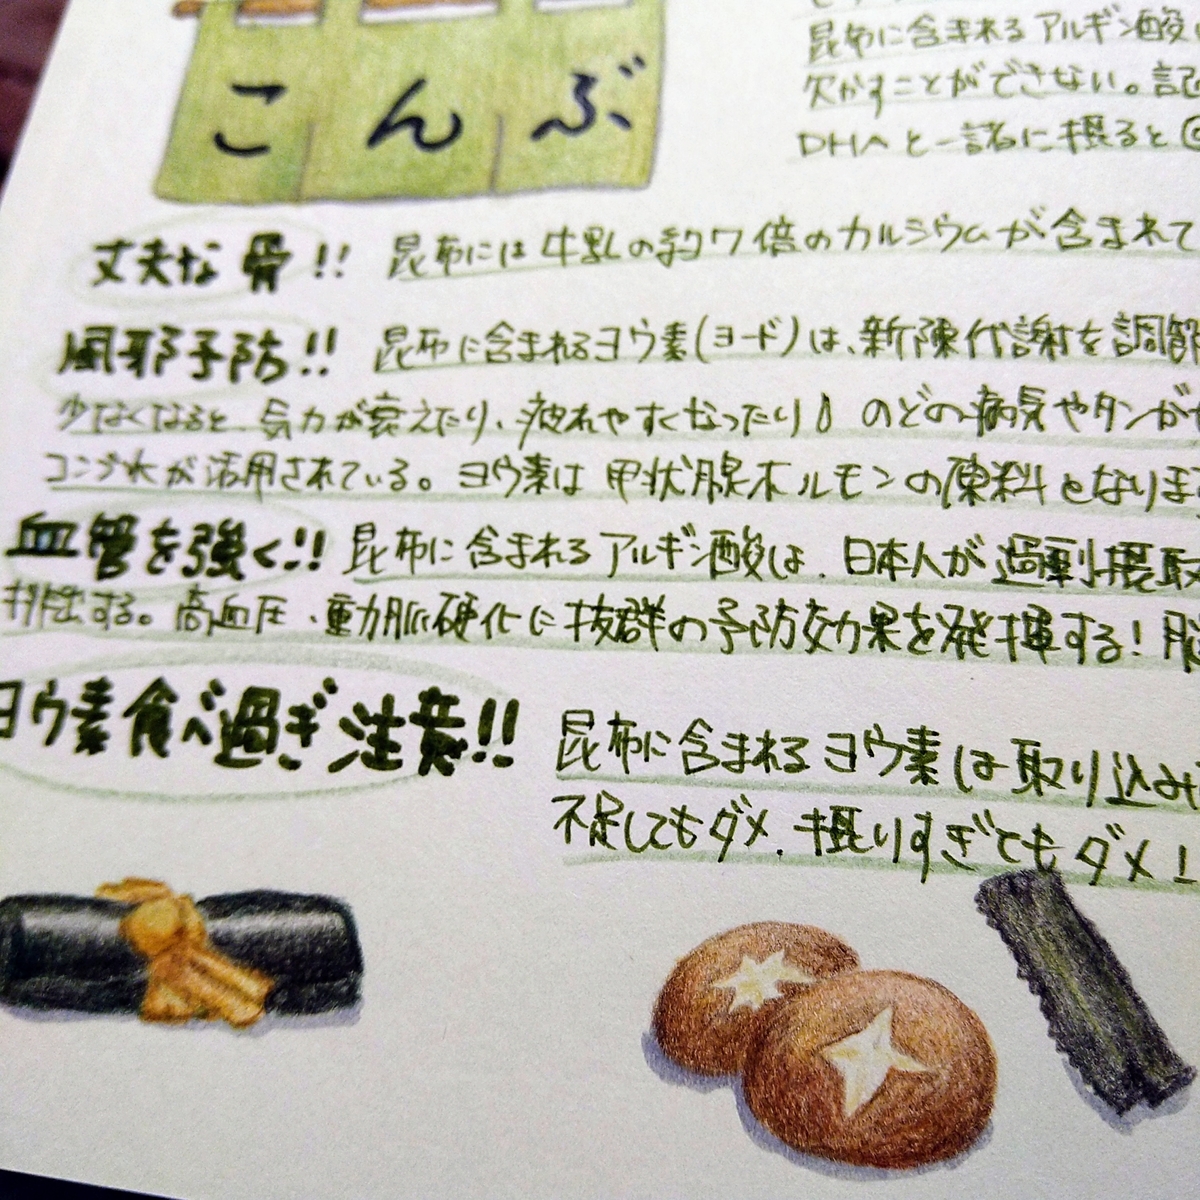 こんぶ
昆布に含まれるアルギン酸
欠かすことができない。記
DHAと一諸に摂ると
丈夫な骨!! 昆布には牛乳の約7倍のカルシウムが含まれて
風邪予防!! 昆布に含まれるヨウ素(ヨード)は、新陳代謝を調節
少なくなると、気力が衰えたり、疲れやすくなったり💧 のどの病気やタンが
コンブ水が活用されている。ヨウ素は甲状腺ホルモンの原料となりま
血管を強く!! 昆布に含まれるアルギン酸は、日本人が過剰摂取
排出する。高血圧、動脈硬化に抜群の予防効果を発揮する! 脳
ヨウ素食べ過ぎ注意!! 昆布に含まれるヨウ素は取り込み
不足してもダメ、摂りすぎてもダメ!